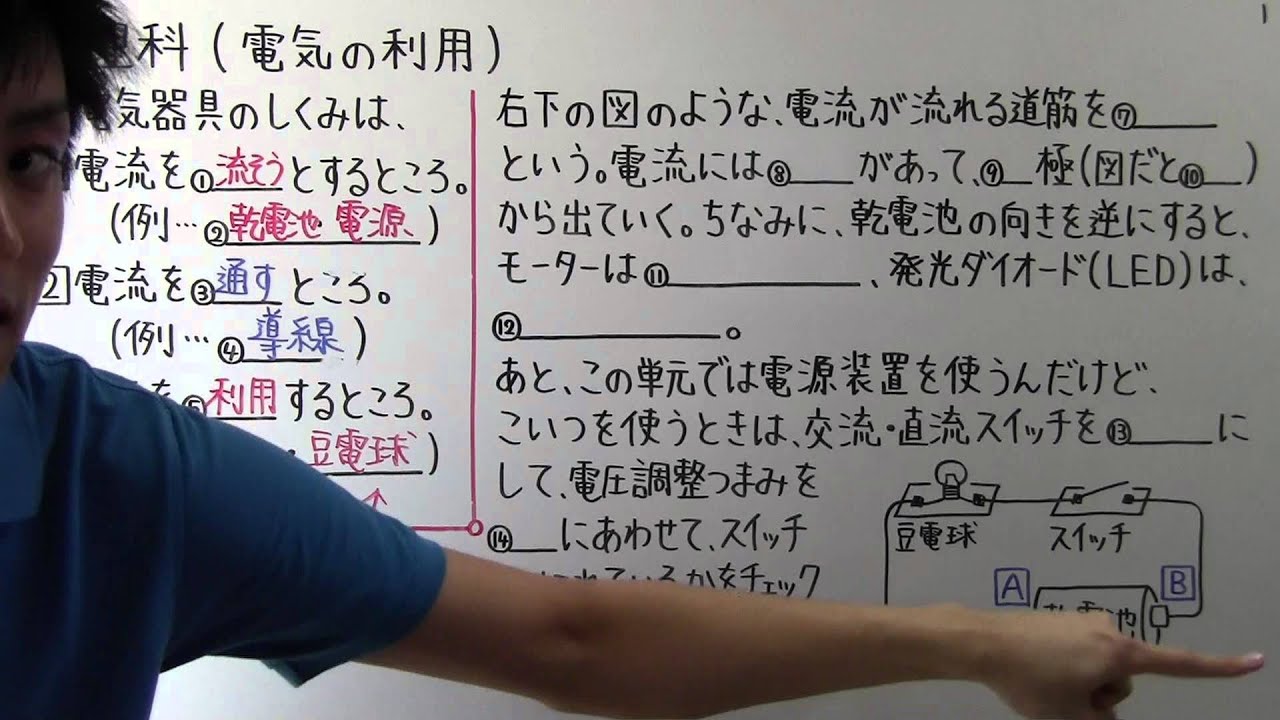 理科(電気の利用)
気器具のしくみは、
電流を①流そうとするところ。
(例…②乾電池・電源、)
2 電流を③通すところ。
(例…④導線)
を⑤利用するところ。
豆電球)
1
右下の図のような、電流が流れる道筋を⑦
という。電流には⑧ があって、⑨ 極(図だと⑩ )
から出ていく。ちなみに、乾電池の向きを逆にすると、
モーターは⑪ 、発光ダイオード(LED)は、
⑫ 。
あと、この単元では電源装置を使うんだけど、
こいつを使うときは、交流・直流スイッチを⑬ に
して、電圧調整つまみを
⑭ にあわせて、スイッチ
れているかをチェック
豆電球 スイッチ
A B